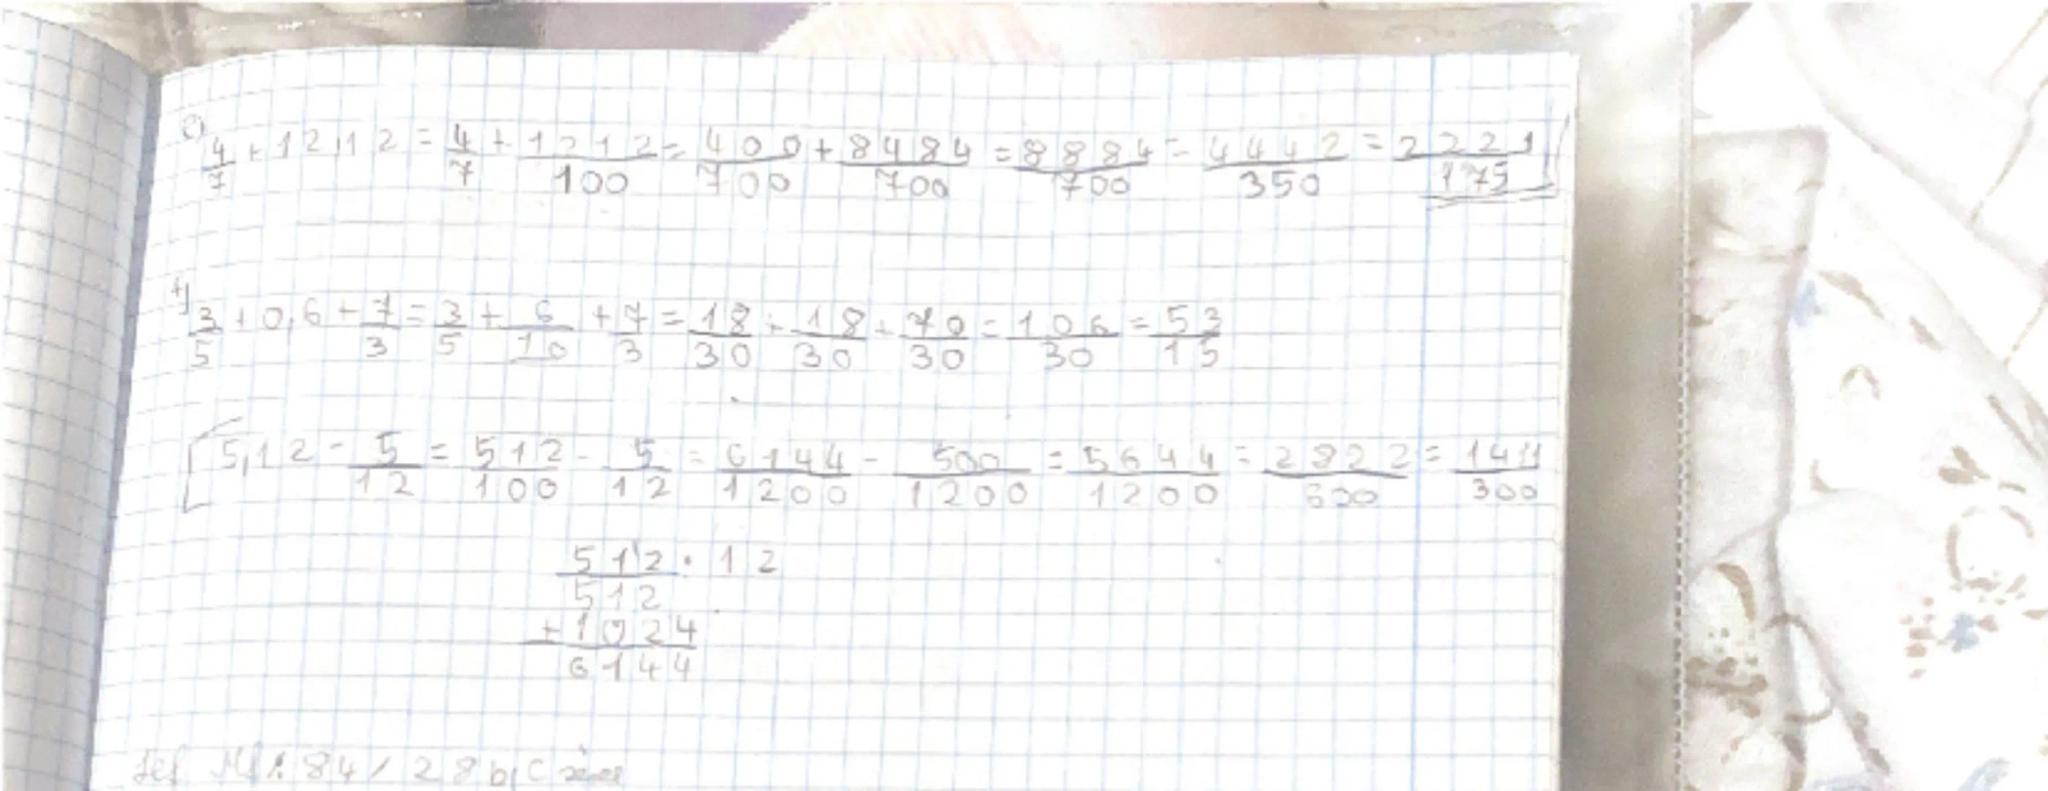 e) 4/7 + 12,12 = 4/7 + 1212/100 = 400/700 + 8484/700 = 8884/700 = 4442/350 = 2221/175
f) 3/5 + 0,6 + 7/3 = 3/5 + 6/10 + 7/3 = 18/30 + 18/30 + 70/30 = 106/30 = 53/15
5,12 - 5/12 = 512/100 - 5/12 = 6144/1200 - 500/1200 = 5644/1200 = 2822/600 = 1411/300
512 · 12
512
+ 1024
6144
84 / 28 b, c